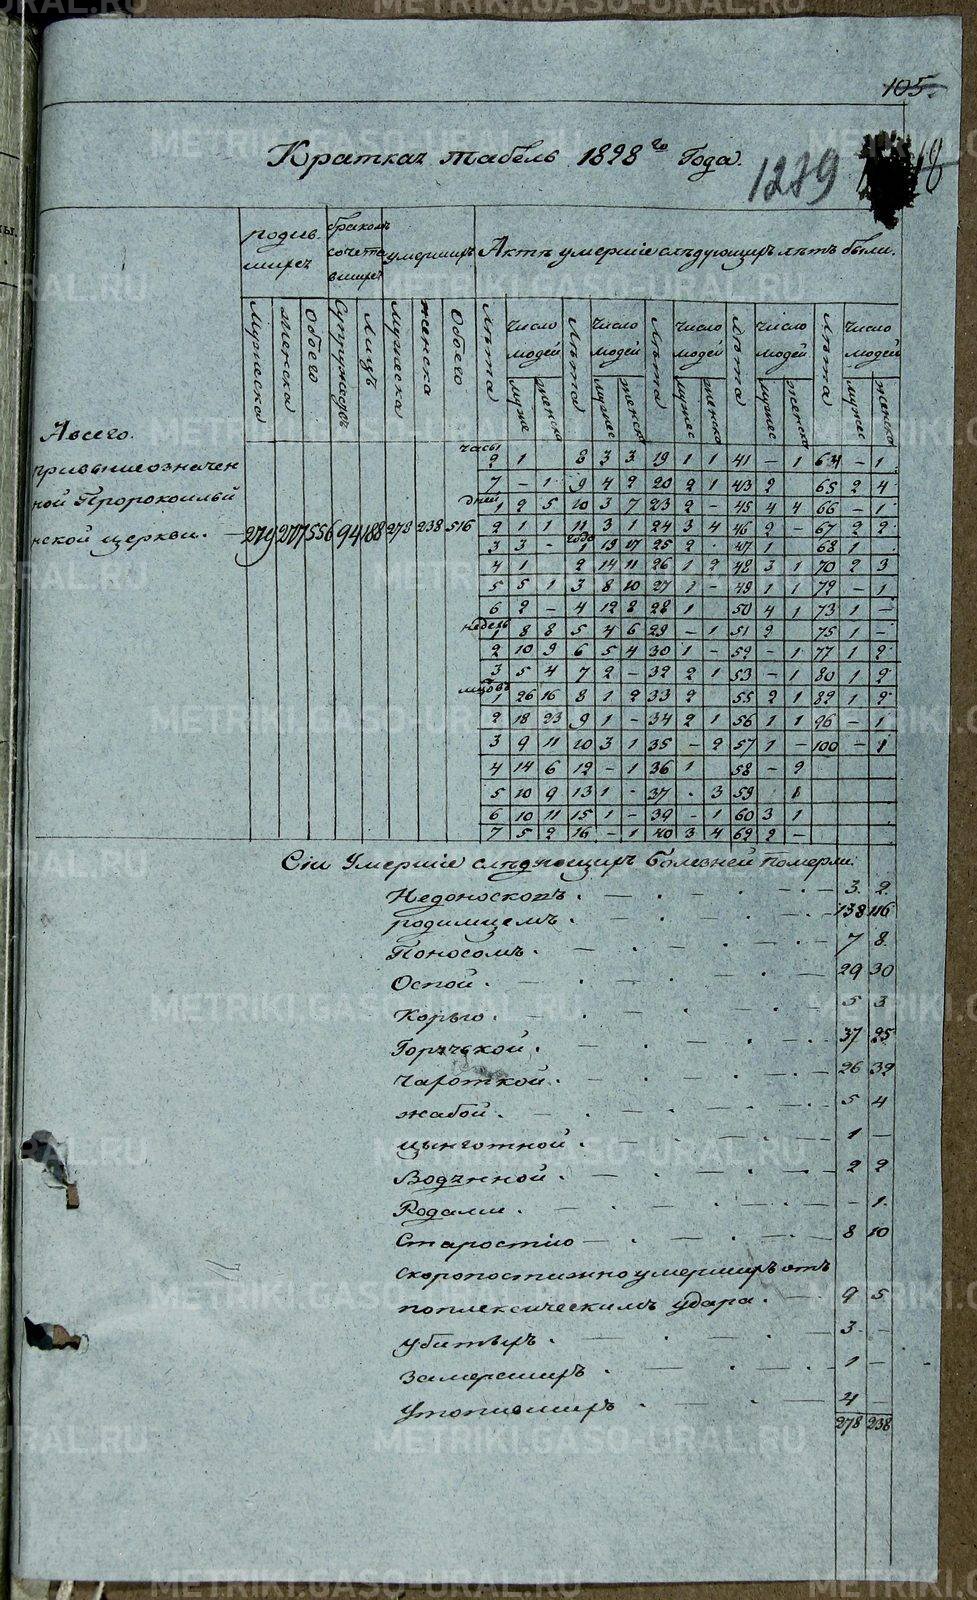 105.
Краткая табель 1828го Года.
1239
18
родив
шихъ
бракомъ
сочета
вшихъ
умершихъ
А кто умершіе слѣдующихъ лѣтъ были.
Мужеска
женска
Обоего
Супружествъ
Лицъ
Мужеска
женска
Обоего
Лѣта
число людей
Лѣта
число людей
Лѣта
число людей
Лѣта
число людей
Лѣта
число людей
мужес
женска
мужес
женска
мужес
женска
мужес
женска
мужес
женска
А всего
при вышеозначен
ной Пророкоильи
нской церкви. 279 277 556 94 188 278 238 516
часы
2 1 8 3 3 19 1 1 41 – 1 64 – 1
7 – 1 9 4 2 20 2 1 43 2 65 2 4
дней
1 2 5 10 3 7 23 2 – 45 4 4 66 – 1
2 1 1 11 3 1 24 3 4 46 2 – 67 2 2
3 3 – года 1 19 17 25 2 47 1 68 1
4 1 2 14 11 26 1 2 48 3 1 70 2 3
5 5 1 3 8 10 27 1 – 49 1 1 72 – 1
6 2 – 4 12 8 28 1 50 4 1 73 1 –
недель
1 8 8 5 4 6 29 – 1 51 2 75 1 –
2 10 9 6 5 4 30 1 – 52 – 1 77 1 2
3 5 4 7 2 – 32 2 1 53 – 1 80 1 2
мцовъ
1 26 16 8 1 2 33 2 55 2 1 82 1 2
2 18 23 9 1 – 34 2 1 56 1 1 96 – 1
3 9 11 10 3 1 35 – 2 57 1 – 100 – 1
4 14 6 12 – 1 36 1 58 – 2
5 10 9 13 1 – 37 . 3 59 1
6 10 11 15 1 – 39 – 1 60 3 1
7 5 2 16 – 1 40 3 4 62 2 –
Сіи Умершіе слѣдующихъ болезней померли:
Недоноскомъ. 3. 2.
родимцемъ. 138 116
Поносомъ. 7 8.
Оспой. 29 30
Корью. 5 3
Горячькой. 37 25
Чахоткой. 26 32
жабой. 5 4
цынготной. 1 –
Водяной. 2 2
Родами. – 1.
Старостію 8 10
скоропостижно умершихъ отъ
поплексическимъ удара. 9 5
убитыхъ. 3. –
Замерзшихъ. 1 –
Утопившихъ 4
278 238
METRIKI.GASO-URAL.RU